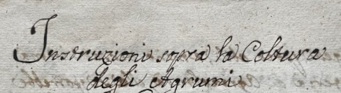 Instruzioni sopra la Coltura
degli Agrumi